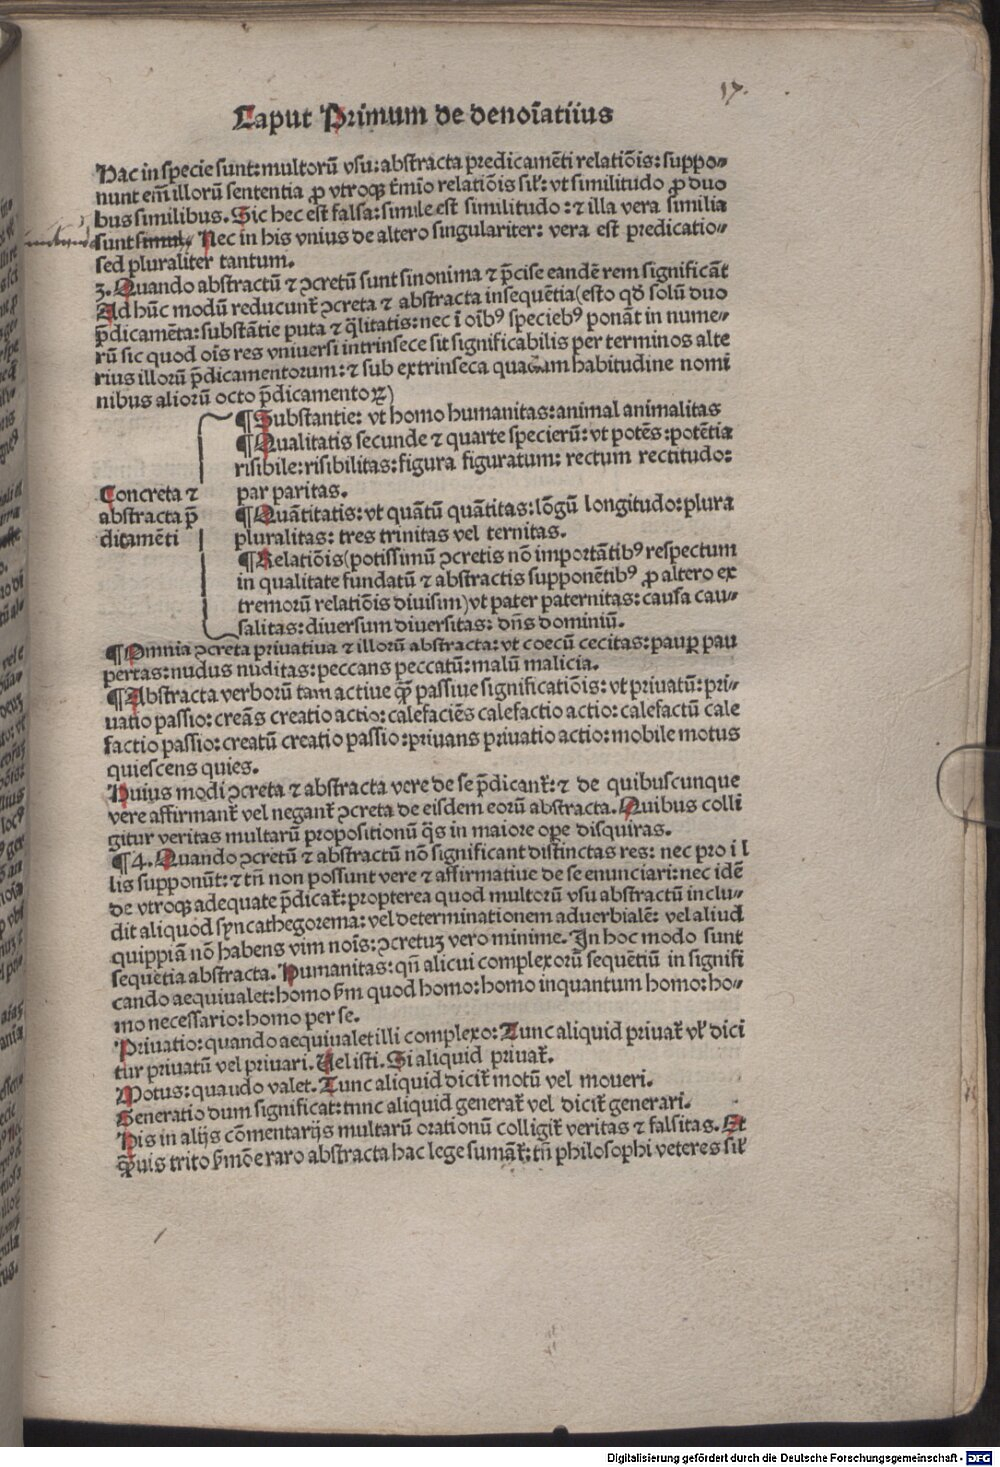 17.
Caput Primum de denoīatiuis
Hac in specie sunt: multorū vsu: abstracta predicamēti relatiōis: suppo-
nunt em̄ illorū sententia ꝓ vtroqꝫ t̄mīo relatiōis sil̄r: vt similitudo ꝓ duo
bus similibus. Sic hec est falsa: simile est similitudo: ⁊ illa vera similia
sunt simul. Nec in his vnius de altero singulariter: vera est predicatio-
sed pluraliter tantum.
3. Quando abstractū ⁊ ꝯcretū sunt sinonima ⁊ p̄cise eandē rem significāt
Ad hūc modū reducunt̄ ꝯcreta ⁊ abstracta in sequētia (esto qd̄ solū duo
p̄dicamēta: substātie puta ⁊ q̄litatis: nec ī oībꝰ speciebꝰ ponāt in nume-
rū sic quod oīs res vniuersi intrinsece sit significabilis per terminos alte
rius illorū p̄dicamentorum: ⁊ sub extrinseca quadam habitudine nomī
nibus aliorū octo p̄dicamentoꝝ)
¶ Substantie: vt homo humanitas: animal animalitas
¶ Qualitatis secunde ⁊ quarte specierū: vt potēs: potētia
risibile: risibilitas: figura figuratum: rectum rectitudo:
par paritas.
Concreta ⁊
abstracta p̄
dicamēti
¶ Quātitatis: vt quātū quātitas: lōgū longitudo: plura
pluralitas: tres trinitas vel ternitas.
¶ Relatiōis (potissimū ꝯcretis nō importātibꝰ respectum
in qualitate fundatū ⁊ abstractis supponētibꝰ ꝓ altero ex
tremorū relatiōis diuisim) vt pater paternitas: causa cau-
salitas: diuersum diuersitas: dn̄s dominiū.
¶ Omnia ꝯcreta priuatiua ⁊ illorū abstracta: vt coecū cecitas: paup̄ pau
pertas: nudus nuditas: peccans peccatū: malū malicia.
¶ Abstracta verborū tam actiue q̄ꝫ passiue significatiōis: vt priuatū: pri-
uatio passio: creās creatio actio: calefaciēs calefactio actio: calefactū cale
factio passio: creatū creatio passio: priuans priuatio actio: mobile motus
quiescens quies.
Huius modi ꝯcreta ⁊ abstracta vere de se p̄dicant̄: ⁊ de quibuscunque
vere affirmant̄ vel negant̄ ꝯcreta de eisdem eorū abstracta. Quibus colli
gitur veritas multarū propositionū q̄s in maiore ope disquiras.
¶ 4. Quando ꝯcretū ⁊ abstractū nō significant distinctas res: nec pro i l
lis supponūt: ⁊ tn̄ non possunt vere ⁊ affirmatiue de se enunciari: nec idē
de vtroqꝫ adequate p̄dicat̄: propterea quod multorū vsu abstractū inclu-
dit aliquod syncathegorema: vel determinationem aduerbialē: vel aliud
quippiā nō habens vim noīs: ꝯcretuꝫ vero minime. In hoc modo sunt
sequētia abstracta. Humanitas: qn̄ alicui complexorū sequētiū in signifi
cando aequiualet: homo s̄m quod homo: homo inquantum homo: ho-
mo necessario: homo per se.
Priuatio: quando aequiualet illi complexo: Tunc aliquid priuat̄ vl̄ dici
tur priuatū vel priuari. Uel isti. Si aliquid priuat̄.
Motus: quaudo valet. Tunc aliquid dicit̄ motū vel moueri.
Generatio dum significat: tnnc aliquid generat̄ vel dicit̄ generari.
His in alijs cōmentarijs multarū orationū colligit̄ veritas ⁊ falsitas. Et
q̄ꝫuis trito s̄mōe raro abstracta hac lege sumāt̄: tn̄ philosophi veteres sil̄r
Digitalisierung gefördert durch die Deutsche Forschungsgemeinschaft - DFG